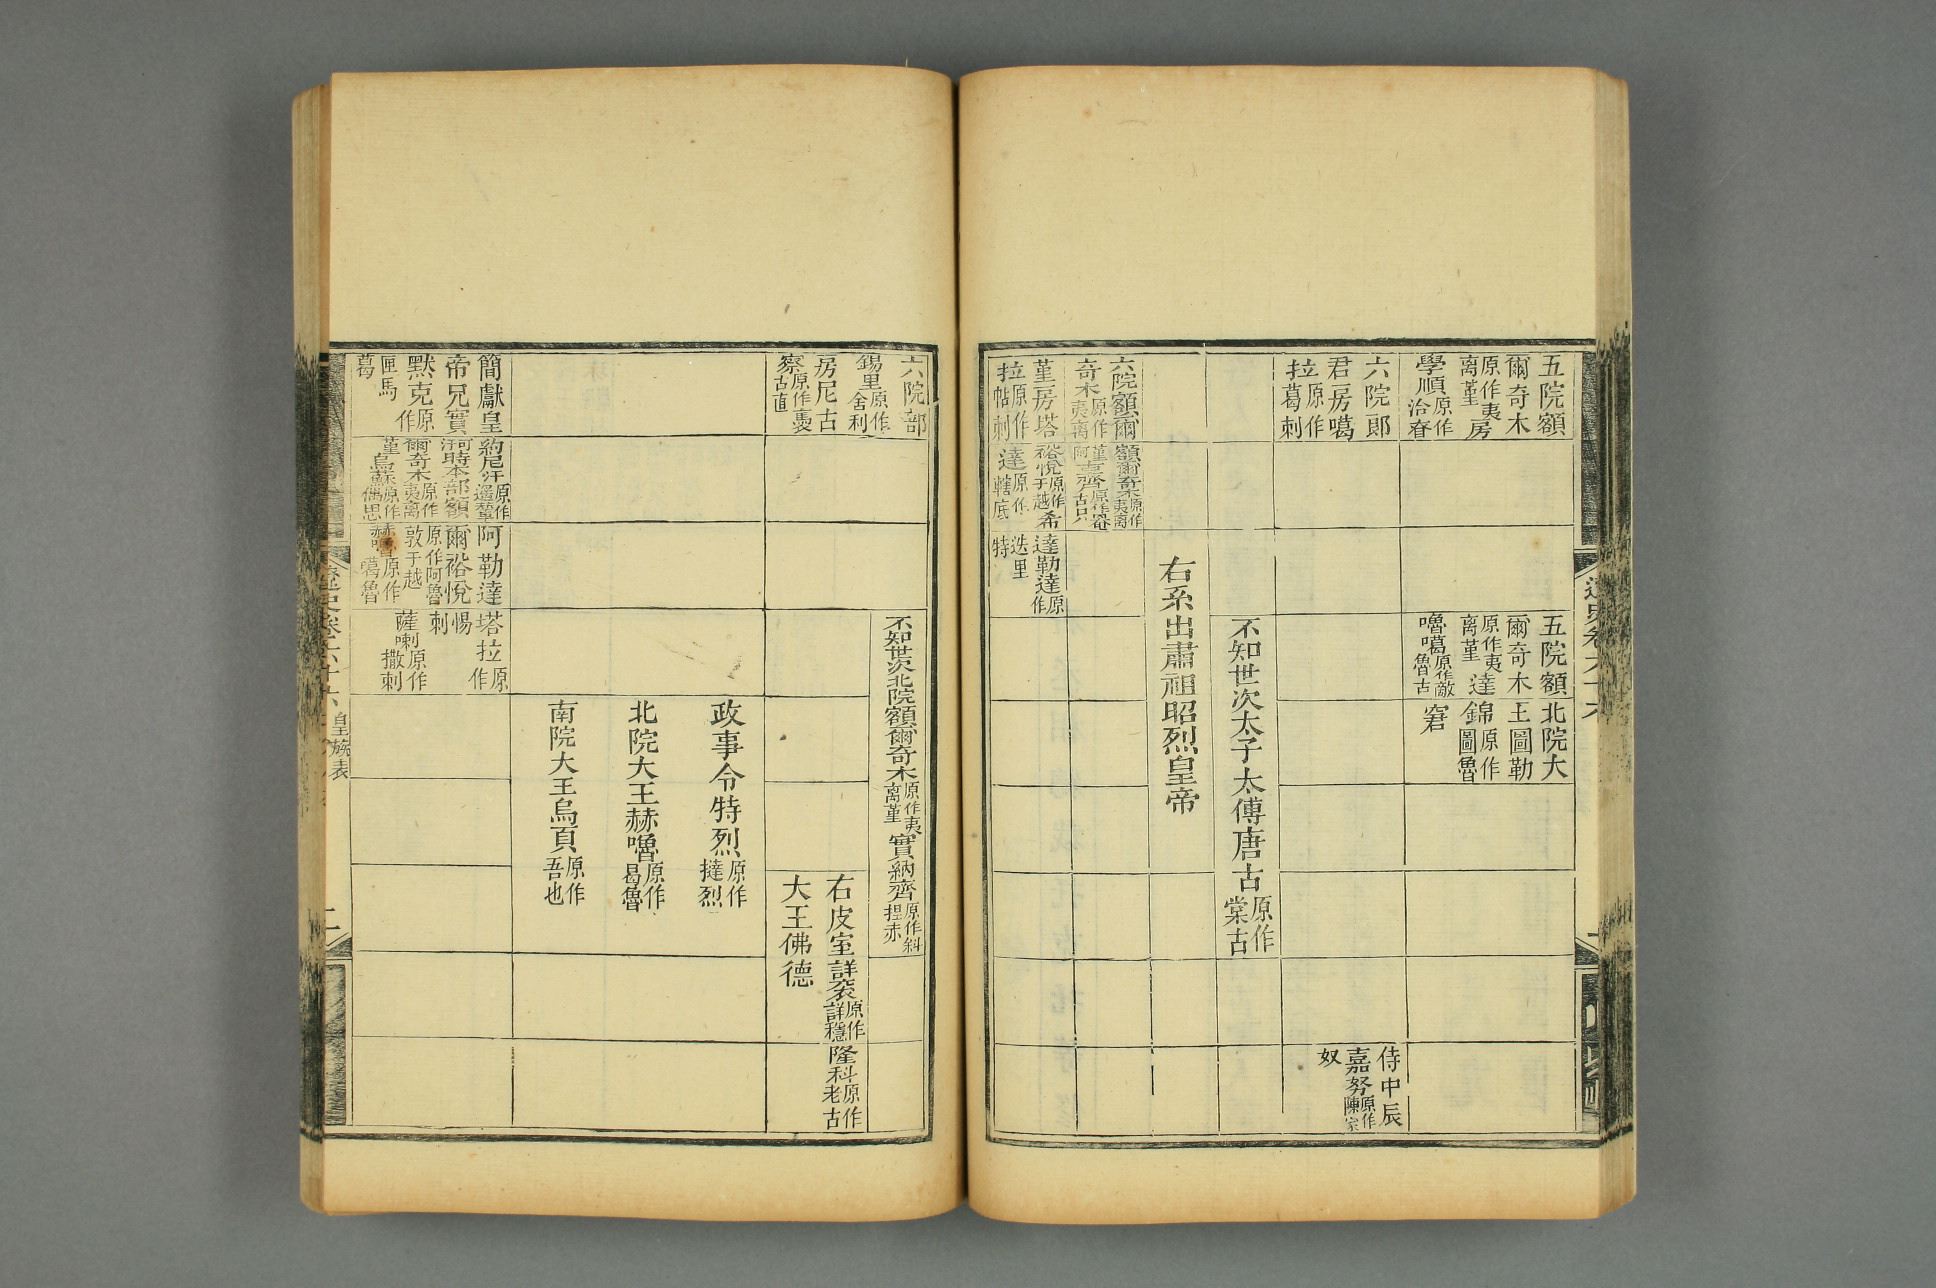 五院額
爾奇木
原作夷
离堇房
學順原作
洽眘
五院額
爾奇木
原作夷
离堇達
嚕噶原作敵
魯古
北院大
王圖勒
錦原作
圖魯
窘
六院郞
君房噶
拉原作
葛剌
侍中辰
嘉努原作
陳家
奴
不知世次太子太傅唐古原作
棠古
右系出肅祖昭烈皇帝
六院額爾
奇木原作
夷离
堇房塔
拉原作
帖剌
額爾奇木原作
夷离
堇吉齊原作
古只
裕悅原作
于越希
達原作
轄底
達勒達原
作
迭里
特
六院部
錫里原作
舍利
房尼古
察原作裹
古直
不知世次北院額爾奇木原作夷
离堇實納齊原作斜
揑赤
右皮室詳袞原作
詳穩隆科原作
老古
大王佛德
政事令特烈原作
撻烈
北院大王赫嚕原作
曷魯
南院大王烏頁原作
吾也
簡獻皇
帝兄實
默克原
作
匣馬
葛
約尼汗原作
遥輦
河時本部額
爾奇木原作
夷离
堇烏蘇原作
偶思
阿勒達
爾裕悅
原作阿魯
敦于越
赫嚕原作
曷魯
塔拉原
作
惕
剌
薩喇原作
撒剌
遼史卷六十六
皇族表
二